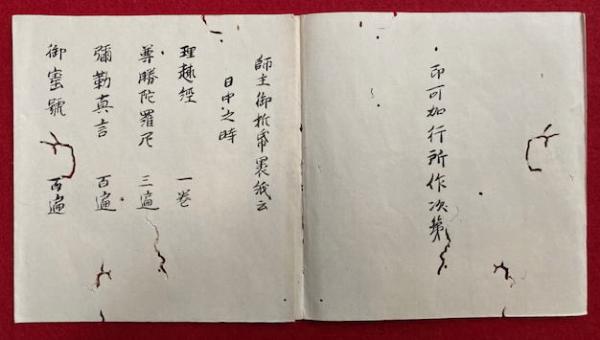 印可加行所作次第
師主御折帋裏紙云
日中之時
理趣經 一巻
尊勝陀羅尼 三遍
彌勒真言 百遍
御寳號 百遍